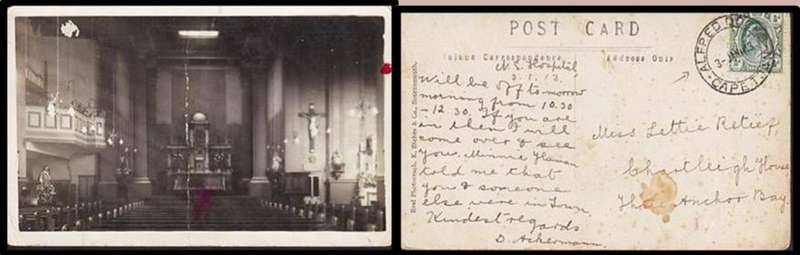 POST CARD
Inland Correspondence. Address Only
ALFRED DOC
3 JAN
CAPET
N. S. Hospital,
3.1.13.
Will be off tomorrow
morning from 10.30
- 12.30. If you are
in then I will
come over & see
you. Minnie
told me that
you & someone
else were in Town.
Kindest regards
D. Ackermann.
Miss Lettie Retief,
Chartleigh House
Three Anchor Bay.
Real Photograph, E. & Co., Bournemouth.